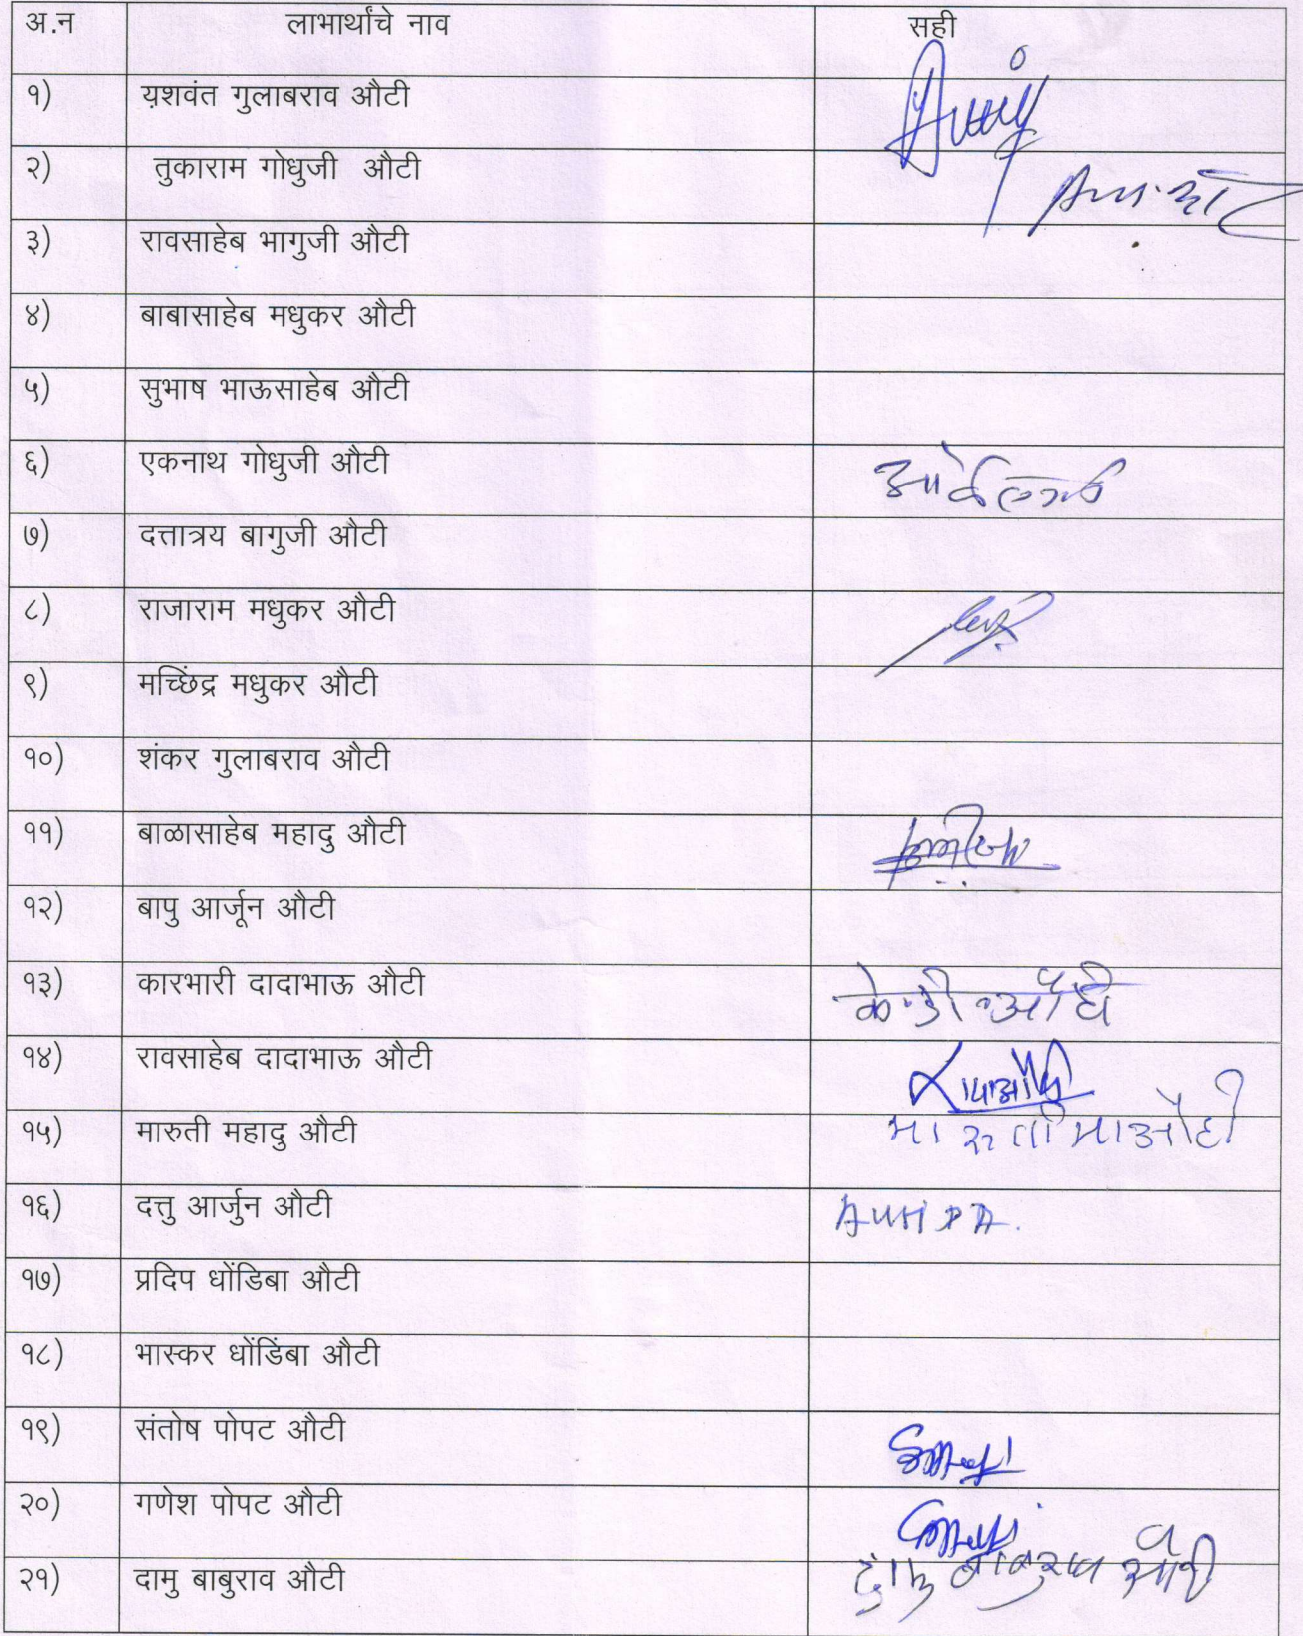 अ.न लाभार्थांचे नाव सही
१) य़शवंत गुलाबराव औटी
२) तुकाराम गोधुजी औटी
३) रावसाहेब भागुजी औटी
४) बाबासाहेब मधुकर औटी
५) सुभाष भाऊसाहेब औटी
६) एकनाथ गोधुजी औटी
७) दत्तात्रय बागुजी औटी
८) राजाराम मधुकर औटी
९) मच्छिंद्र मधुकर औटी
१०) शंकर गुलाबराव औटी
११) बाळासाहेब महादु औटी
१२) बापु आर्जून औटी
१३) कारभारी दादाभाऊ औटी के.डी.औटी
१४) रावसाहेब दादाभाऊ औटी
१५) मारुती महादु औटी मारुती मा औटी
१६) दत्तु आर्जुन औटी
१७) प्रदिप धोंडिबा औटी
१८) भास्कर धोंडिंबा औटी
१९) संतोष पोपट औटी
२०) गणेश पोपट औटी
२१) दामु बाबुराव औटी दामु बाबुराव औटी